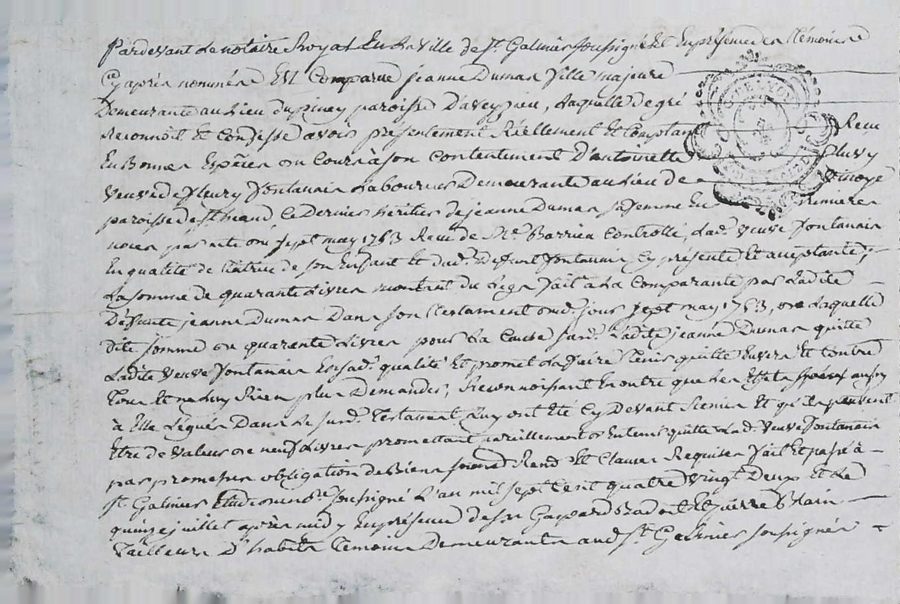 Pardevant Le notaire Royal En La Ville de St Galmier soussigné Et En présence des témoins
Cy après nommés Est Comparue jeanne Dumas fille majeure
Demeurante au Lieu du paroisse D'aveyzieu, Laquelle de gré
Reconnoit Et Confesse avoir présentement Réellement Et Comptant Reçu
En Bonnes Espèces au Cours à son Contentement D'antoinette
Veuve de fleury fontanais Laboureur Demeurante au Lieu de
paroisse de Ce Dernier héritier de jeanne Dumas sa femme
par acte du sept may 1753 Reçu de Me Barrieu Controllé, Lad. Veuve fontanais
En qualité de tutrice de son Enfant Et dud. Defunt fontanais, Cy présente Et acceptante,
La somme de quarante Livres montant du Legs fait à La Comparante par Ladite
Deffunte jeanne Dumas Dans son testament dud. jour sept may 1753, de Laquelle
dite somme de quarante Livres pour La Cause susd. Ladite jeanne Dumas quitte
Ladite Veuve fontanais En sad. qualité Et promet La faire tenir quitte Envers Et Contre
Tous Et ne Luy Rien plus Demander, Reconnoissant En outre que Les Effets aussy
à Elle Légués Dans Le susd. Testament Luy ont Eté Cy Devant Remis Et qu'ils peuvent
Etre de Valeur de neuf Livres promettant pareillement En tenir quitte Lad. Veuve fontanais
par promesse obligation de Biens Et Clauses Requises fait Et passé à
St Galmier Etude du nore soussigné L'an mil sept Cent quatre Vingt Deux Et Le
quinze juillet après midy En présence de Sr Gaspard Et pierre
Tailleurs D'habits Temoins Demeurants aud. St Galmier soussignés